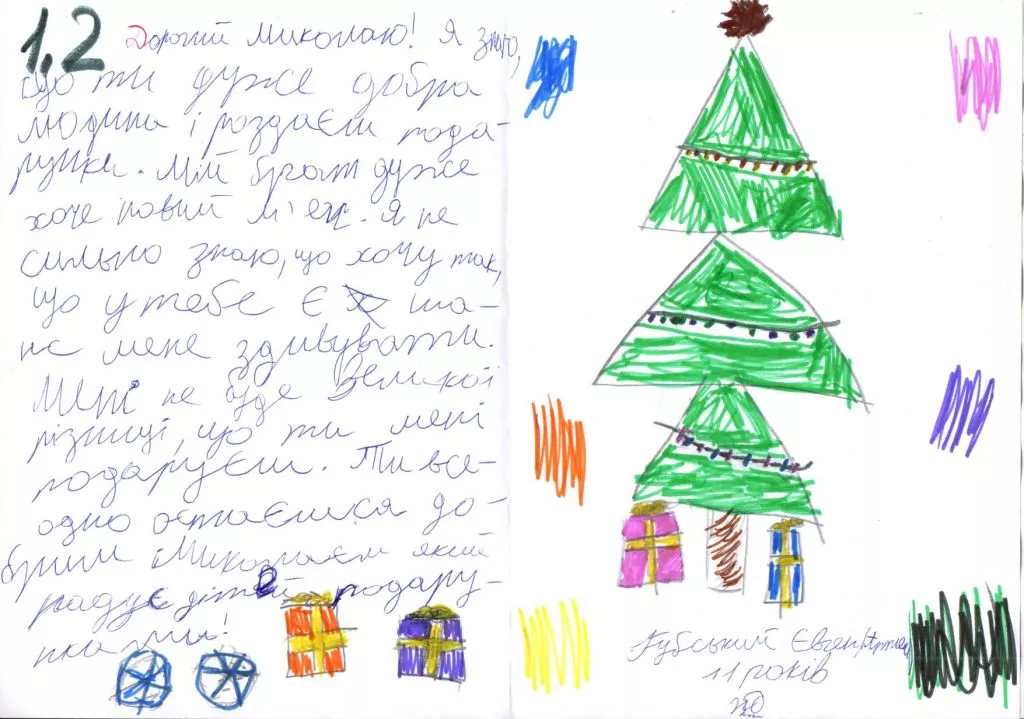 1,2
Дорогий Миколаю! Я знаю,
що ти дуже добра
людина і роздаєш пода-
рунки. Мій брат дуже
хоче новий м'яч. Я не
сильно знаю, що хочу так,
що у тебе є ша-
нс мене здивувати.
Мені не буде великої
різниці, що ти мені
подаруєш. Ти все-
одно остаєшся до-
брим Миколаєм який
радує дітей подару-
нками!
Губський Євген
11 років